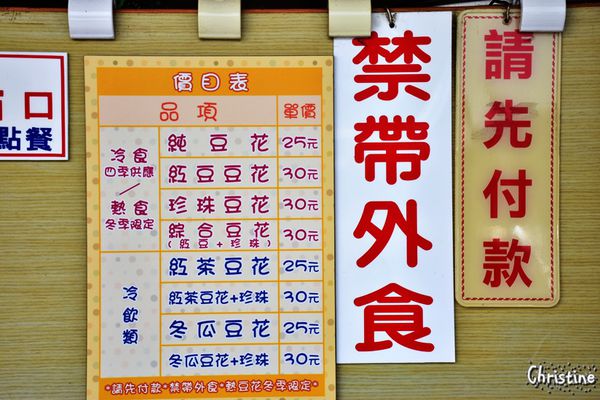 口
點餐
價目表
品項 單價
冷食
四季供應
/
熱食
冬季限定
純豆花 25元
紅豆豆花 30元
珍珠豆花 30元
綜合豆花 30元
(紅豆+珍珠)
冷飲類
紅茶豆花 25元
紅茶豆花+珍珠 30元
冬瓜豆花 25元
冬瓜豆花+珍珠 30元
*請先付款*禁帶外食*熱豆花冬季限定*
禁帶外食
請先付款
Christine